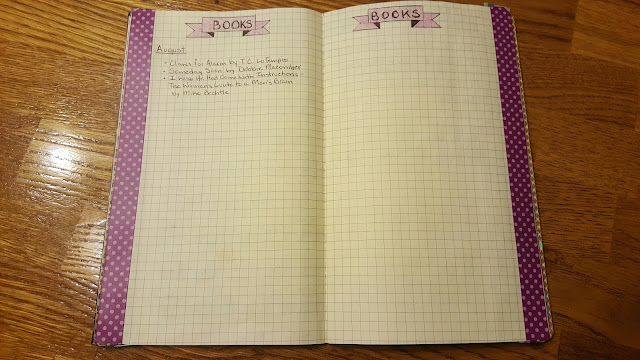 BOOKS
August
• Claws for Alarm by T.C. LoTempio
• Someday Soon by Debbie Macomber
• I Wish He Had Come With Instructions:
The Woman's Guide to a Man's Brain
by Mike Bechtle
BOOKS